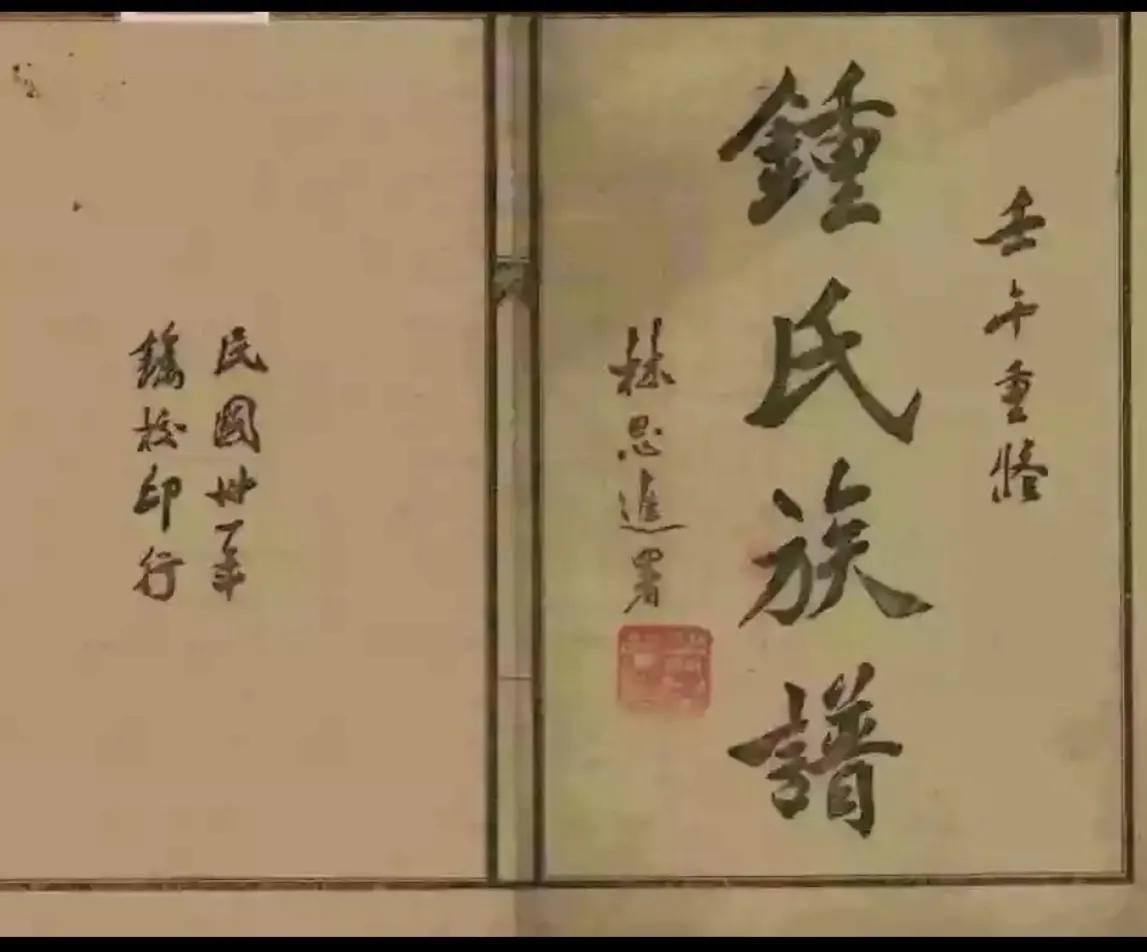 壬午重修
鍾氏族譜
林思進署
民國卅一年
鐫校印行